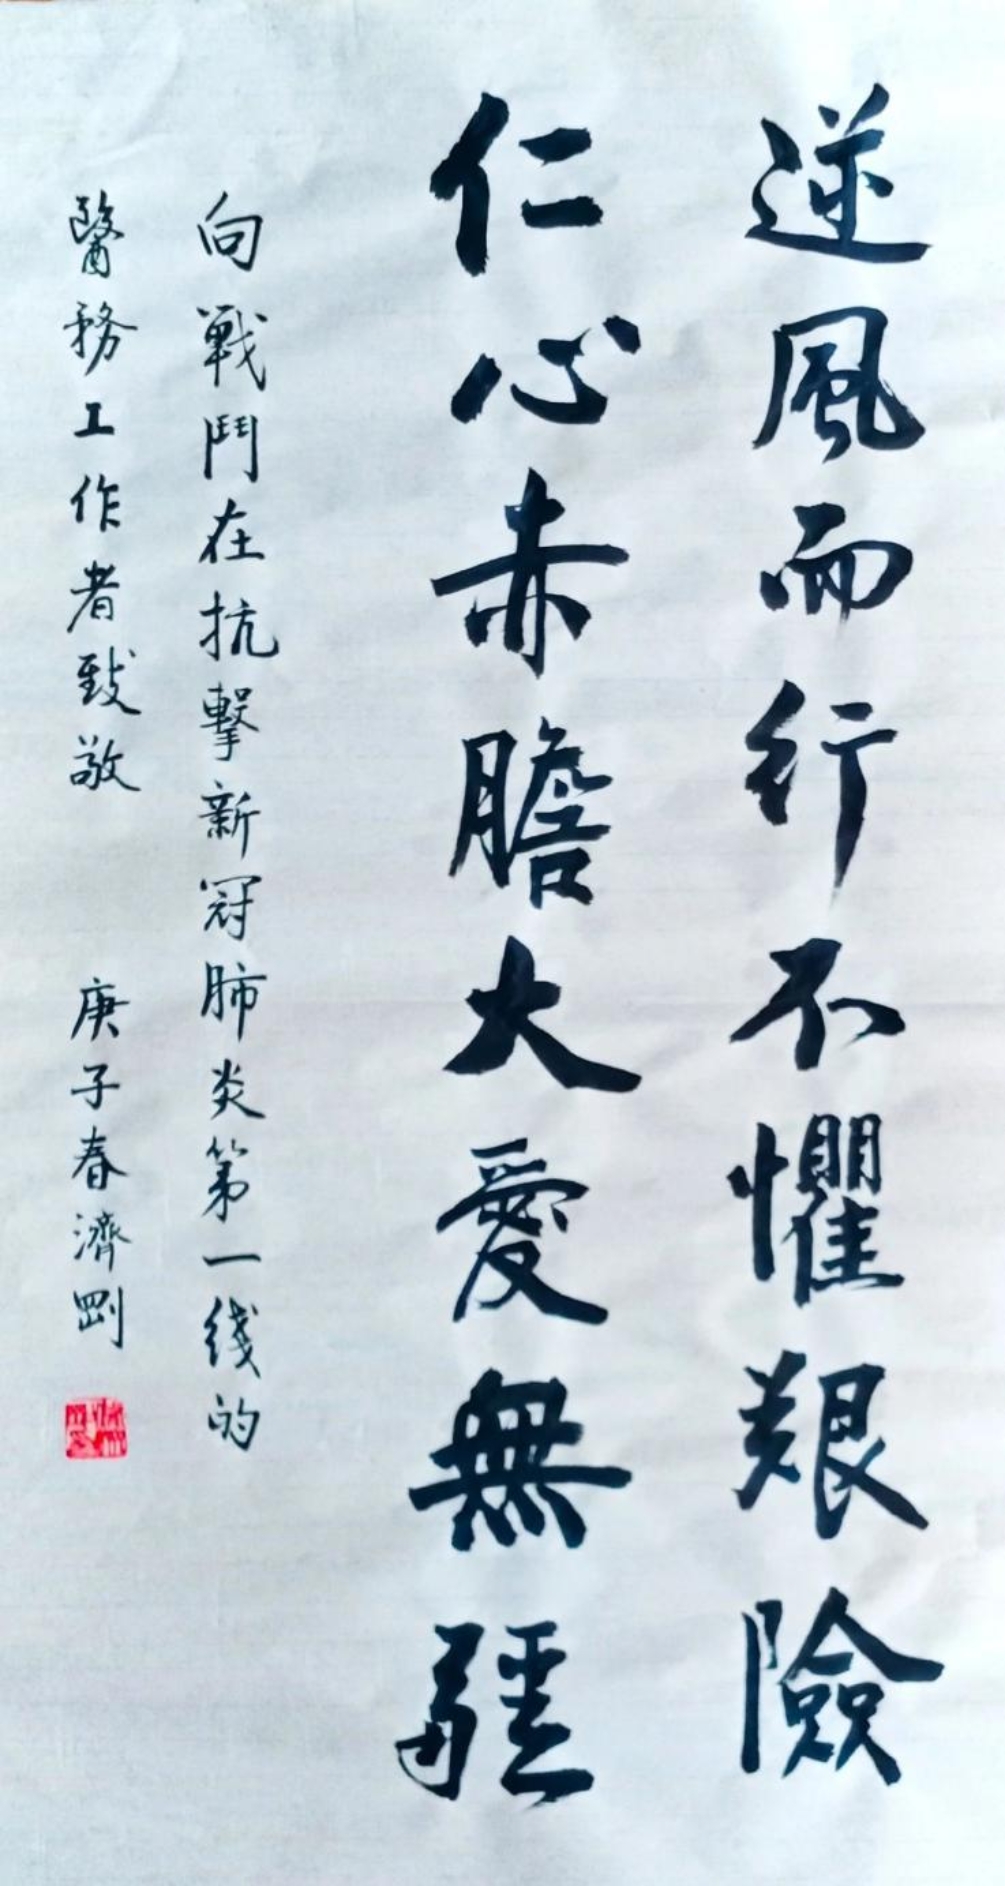 逆風而行不懼艱險
仁心赤膽大愛無疆
向戰鬥在抗擊新冠肺炎第一线的
醫務工作者致敬 庚子春濟剛